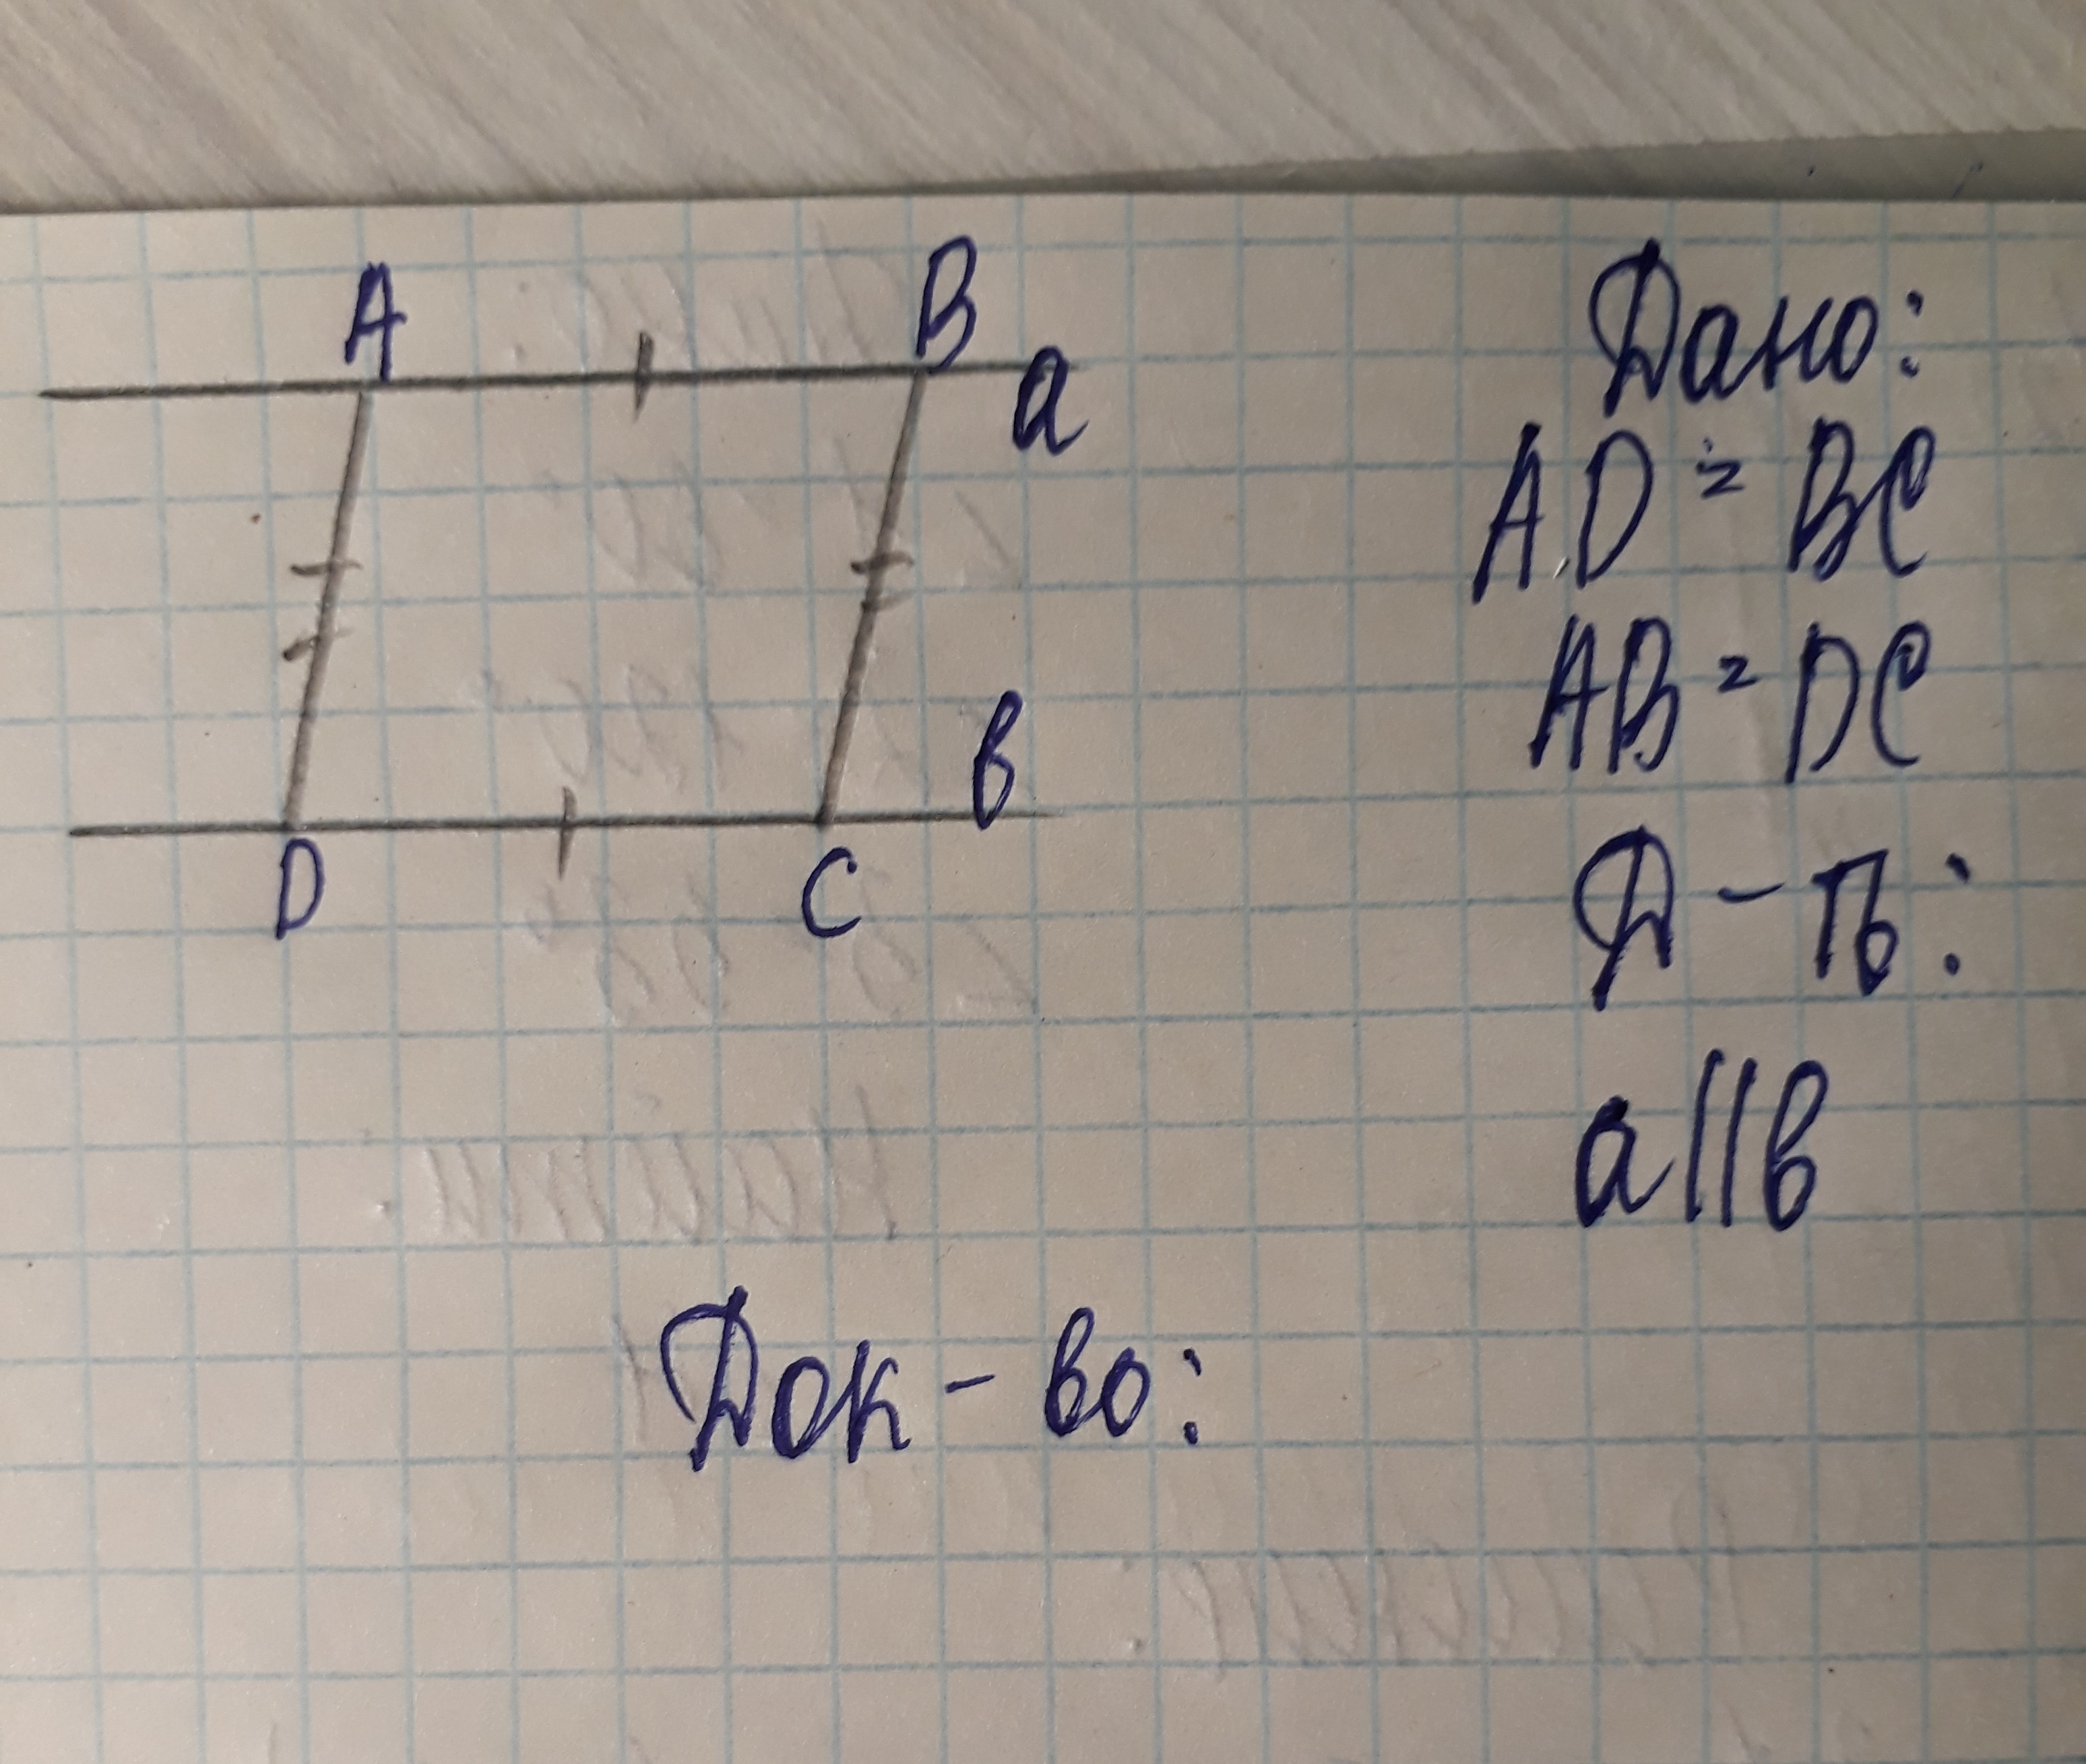 A B
a
в
D C
Дано:
AD = BC
AB = DC
Д-ть:
a||в
Док-во: